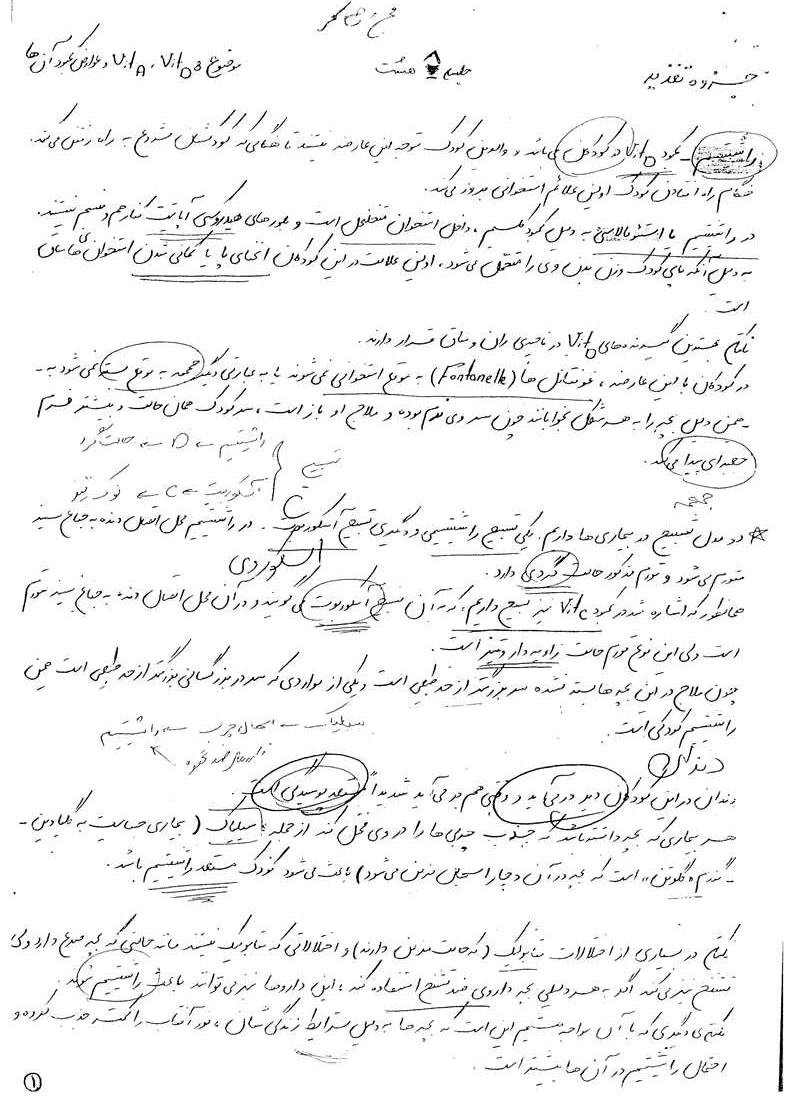 جزوه تغذیه
جلسه ۸ هشت
موضوع VitD3 ، VitA و عوارض کمبود آن ها
راشیتیسم - کمبود VitD در کودکان می باشد و والدین کودک متوجه این عارضه نیستند تا هنگامی که کودکشان شروع به راه رفتن می کند.
هنگام راه افتادن کودک اولین علائم استخوانی بروز می کند.
در راشیتیسم یا استئومالاسی به دلیل کمبود کلسیم ، داخل استخوان متخلخل است و بلورهای هیدروکسی آپاتیت کنار هم منسجم نیستند.
به دلیل آنکه پای کودک وزن بدن وی را متحمل می شود ، اولین علامت در این کودکان انحنای پا یا کمانی شدن استخوان های ساق
است.
نکته: بیشترین گیرنده های VitD در ناحیه ی ران و ساق قرار دارند.
در کودکان با این عارضه ، فونتانل ها (Fontanelle) به موقع استخوانی نمی شوند یا به عبارتی دیگر جمجمه به موقع بسته نمی شود به -
- همین دلیل بچه را به هر شکل بخوابانند چون سر وی نرم بوده و ملاج او باز است ، سر کودک همان حالت و بیشتر فرم
جعبه ای پیدا می کند.
تسبیح
راشیتیسم ← D ← حالت گرد
اسکوربیت ← C ← نوک تیز
جمجمه
* دو مدل تسبیح در بیماری ها داریم. یکی تسبیح راشیتیسمی و دیگری تسبیح اسکوربوت. در راشیتیسم محل اتصال دنده به جناغ سینه
C
اسکوروی
متورم می شود و تورم مذکور حالت گردی دارد.
همانطور که اشاره شد در کمبود VitC نیز تسبیح داریم، که به آن تسبیح اسکوربوت می گویند و در آن محل اتصال دنده به جناغ سینه تورم
است ولی این نوع تورم حالت زاویه دار و تیز است.
چون ملاج در این بچه ها بسته نشده سر بزرگتر از حد طبیعی است و یکی از مواردی که سر در بزرگسالی بزرگتر از حد طبیعی است همین
راشیتیسم کودکی است.
سلیاک ← اسهال چرب ← راشیتیسم
دندان
دندان در این کودکان دیر در می آید و وقتی هم در می آید شدیداً مستعد پوسیدگی است.
هر بیماری که بچه داشته باشد که جذب چربی ها را در وی مختل کند از جمله: سیلیاک ( بیماری حساسیت به گلیادین -
- گندم «گلوتن» است که بچه در آن دچار اسهال مزمن می شود) باعث می شود کودک مستعد راشیتیسم باشد.
نکته: در بسیاری از اختلالات متابولیک (که حالت مزمن دارند) و اختلالاتی که متابولیک نیستند مانند حالتی که بچه صرع دارد ولی
تشنج نیز می کند اگر به هر دلیلی بچه داروی ضد تشنج استفاده کند ، این داروها نیز می توانند باعث راشیتیسم شوند.
نکته ی دیگری که با آن مواجه هستیم این است که بچه ها به دلیل شرایط زندگی شان ، نور آفتاب را کمتر جذب کرده و
احتمال راشیتیسم در آن ها بیشتر است.
۱